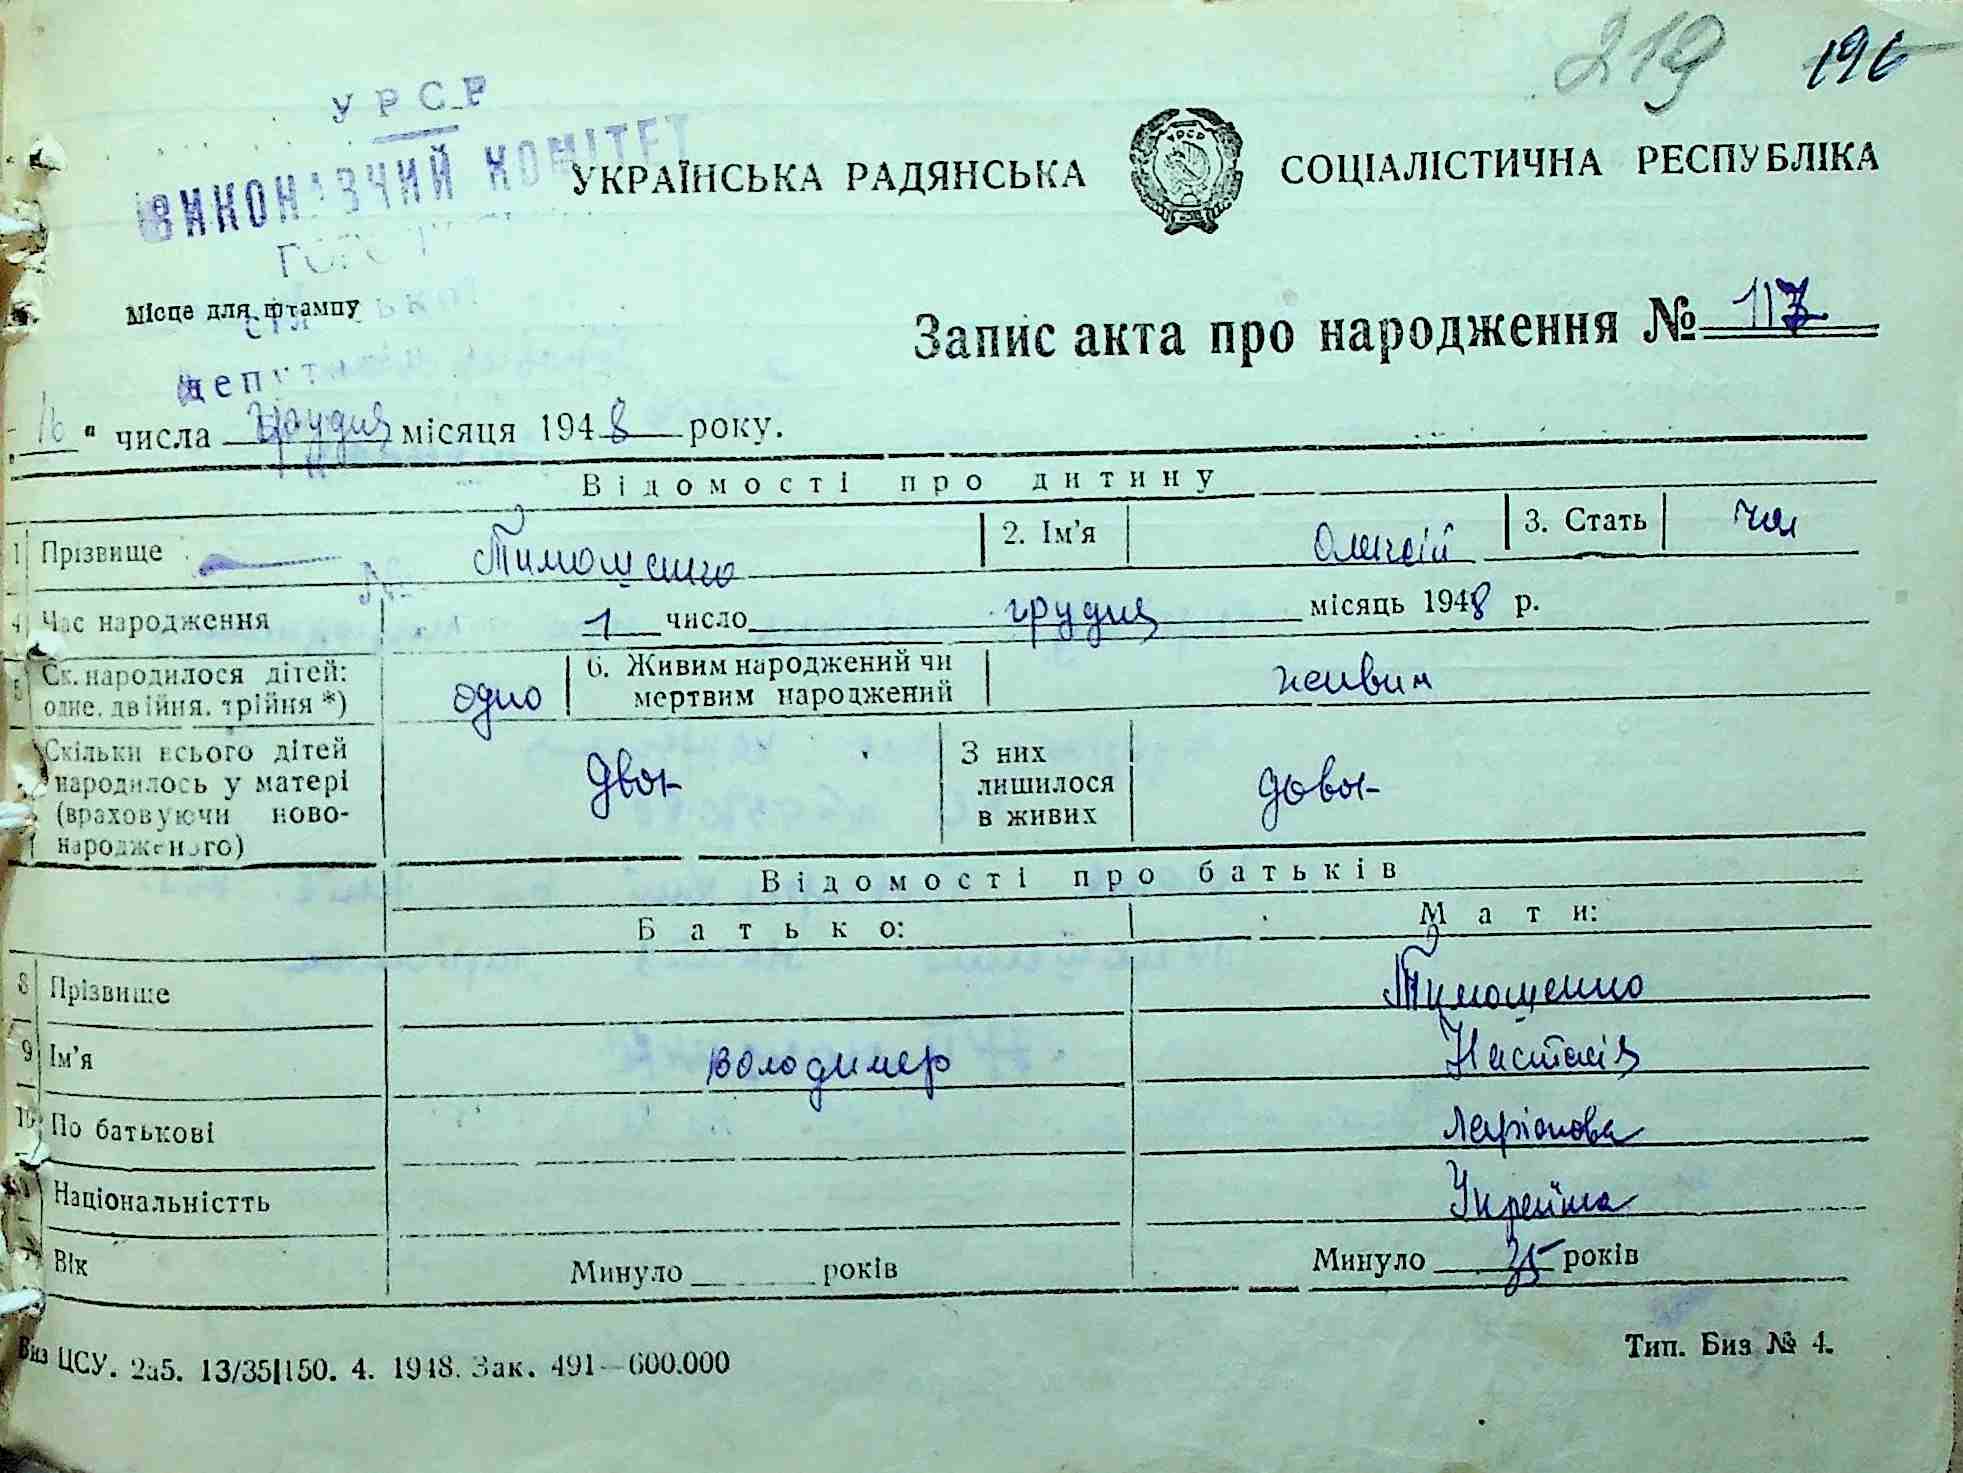 219 196
У Р С Р
ВИКОНАВЧИЙ КОМІТЕТ
УКРАЇНСЬКА РАДЯНСЬКА СОЦІАЛІСТИЧНА РЕСПУБЛІКА
Місце для штампу
Запис акта про народження № 117
депут
16 " числа Грудня місяця 1948 року.
Відомості про дитину
1 Прізвище Тимошенко 2. Ім'я Олексій 3. Стать чол
4 Час народження 1 число грудня місяць 1948 р.
5 Ск. народилося дітей: одне, двійня, трійня *) одно 6. Живим народжений чи мертвим народжений живим
Скільки всього дітей народилось у матері (враховуючи новонародженого) двох З них лишилося в живих двох
Відомості про батьків
Батько: Мати:
8 Прізвище Тимошенко
9 Ім'я Володимер Настасія
10 По батькові Ларіонова
Національністть Україна
Вік Минуло років Минуло 35 років
Виз ЦСУ. 2а5. 13/35|150. 4. 1948. Зак. 491—600.000
Тип. Биз № 4.